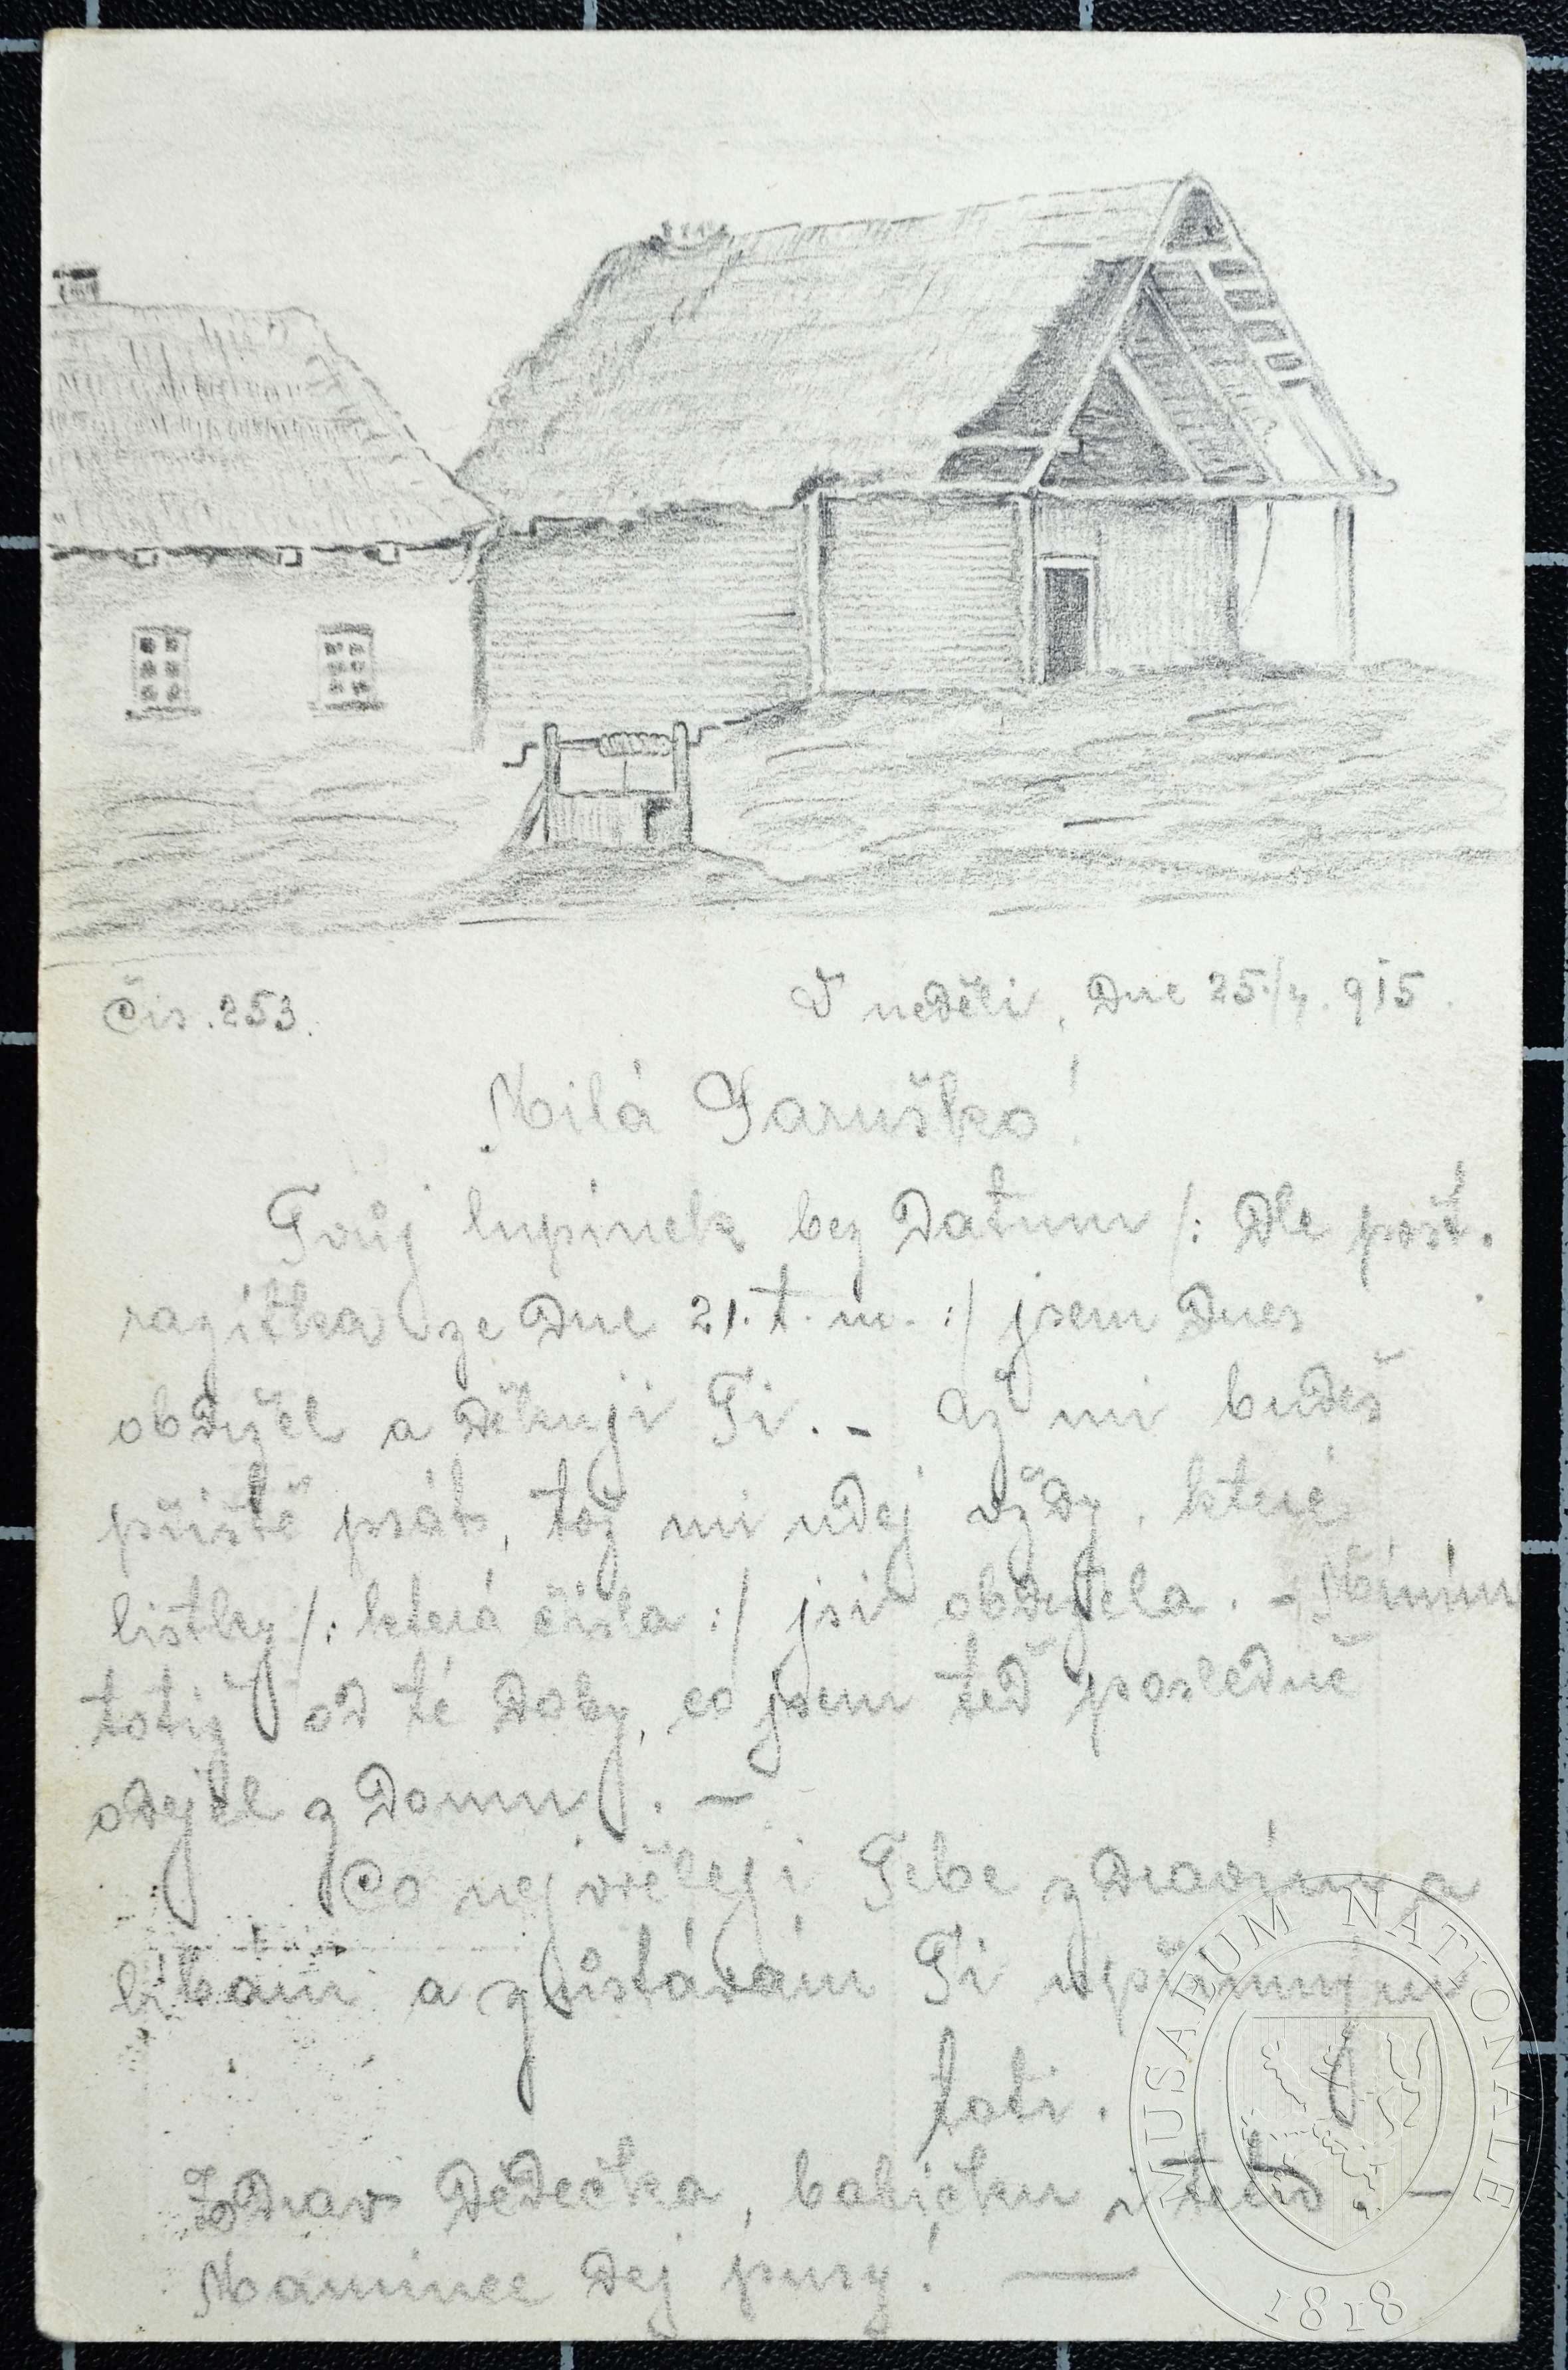 Čis. 253.
V neděli, Dne 25./4. 915.
Milá Jaruško!
Tvůj lupínek bez Datum /: Dle pošt.
razítka ze Dne 21. t. m. :/ jsem Dnes
obdržel a děkuji Ti. – Až mi budeš
příště psát, tož mi udej vždy, které
lístky /: která čísla :/ jsi obdržela. – Míním
totiž od té Doby, co jsem teď posledně
odejel z Domu. –
Co nejvřeleji Tebe zdravím a
líbám a zůstávám Ti upřímným
tati.
Zdrav Dědečka, babičku i tetu. –
Mamince Dej pusy! —
MUSAEUM NATIONALE
1818